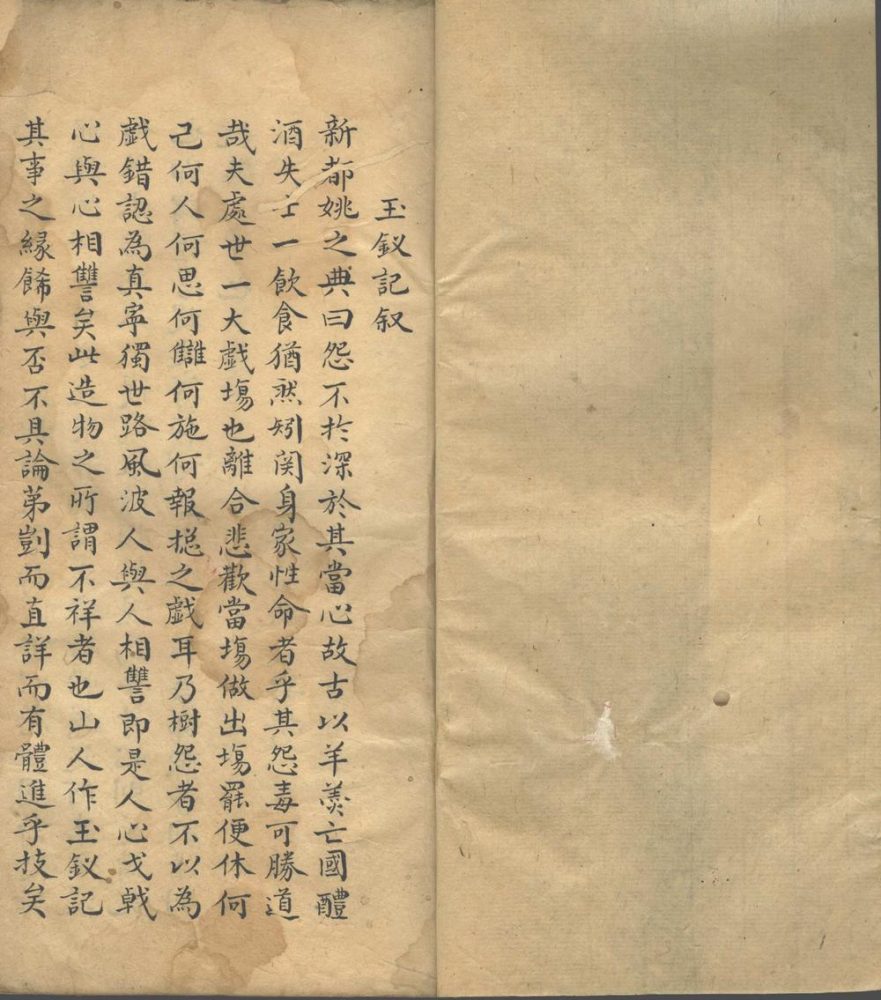 玉釵記叙
新都姚之典曰怨不扵深於其當心故古以羊羮亡國醴
酒失士一飲食猶然矧関身家性命者乎其怨毒可勝道
哉夫處世一大戲塲也離合悲歡當塲做出塲罷便休何
己何人何思何讎何施何報揔之戯耳乃樹怨者不以為
戯錯認為真寜獨世路風波人與人相讐即是人心戈戟
心與心相讐矣此造物之所謂不祥者也山人作玉釵記
其事之緣餙與否不具論第剴而直詳而有體進乎技矣